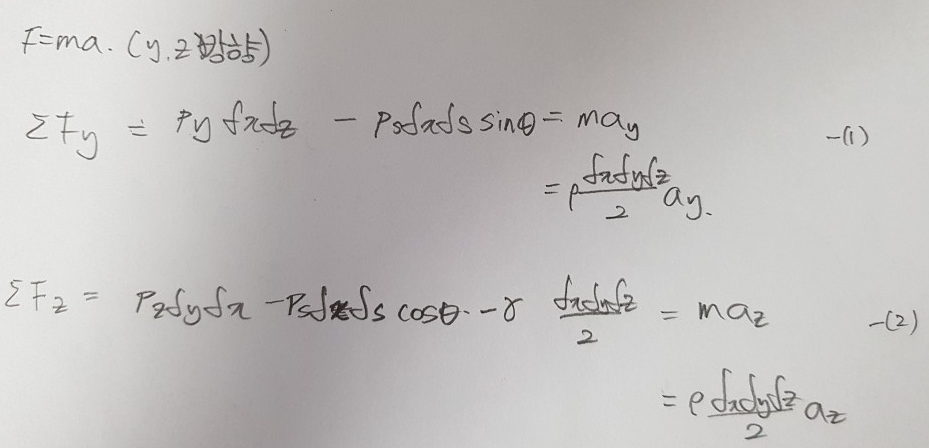 F=ma. (y, z 방향)
ΣFy = Py δxδz - Psδxδs sinθ = may -(1)
= ρ δxδyδz/2 ay.
ΣFz = Pzδyδx - Psδxδs cosθ - γ δxδyδz/2 = maz -(2)
= ρ δxδyδz/2 az